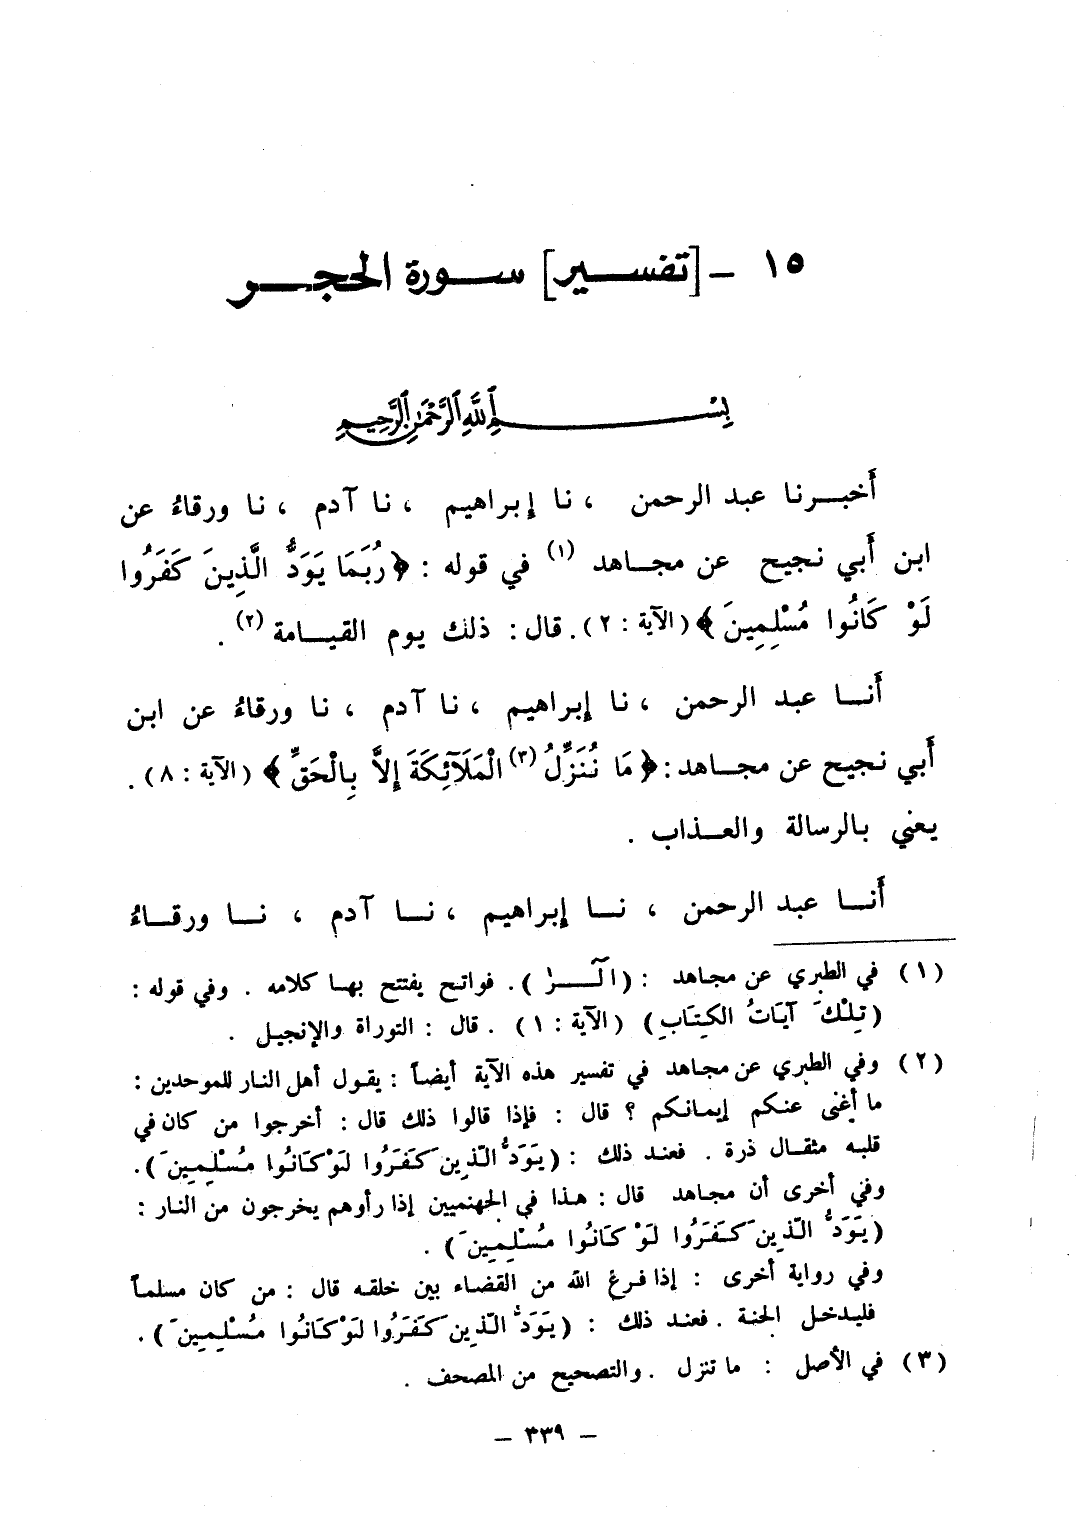 ١٥ - [تفسير] سورة الحجر
بِسْمِ ٱللَّهِ ٱلرَّحْمَٰنِ ٱلرَّحِيمِ
أخبرنا عبد الرحمن ، نا إبراهيم ، نا آدم ، نا ورقاءُ عن
ابن أبي نجيح عن مجاهد (١) في قوله : ﴿رُبَمَا يَوَدُّ الَّذِينَ كَفَرُوا
لَوْ كَانُوا مُسْلِمِينَ﴾ (الآية : ٢). قال : ذلك يوم القيامة (٢) .
أنا عبد الرحمن ، نا إبراهيم ، نا آدم ، نا ورقاءُ عن ابن
أبي نجيح عن مجاهد : ﴿مَا نُنَزِّلُ (٣) الْمَلَآئِكَةَ إِلاَّ بِالْحَقِّ﴾ (الآية : ٨) .
يعني بالرسالة والعذاب .
أنا عبد الرحمن ، نا إبراهيم ، نا آدم ، نا ورقاءُ
(١) في الطبري عن مجاهد : (الٓرٰ) . فواتح يفتتح بها كلامه . وفي قوله :
(تِلْكَ آيَاتُ الكِتَابِ) (الآية : ١) . قال : التوراة والإنجيل .
(٢) وفي الطبري عن مجاهد في تفسير هذه الآية أيضاً : يقول أهل النار للموحدين :
ما أغنى عنكم إيمانكم ؟ قال : فإذا قالوا ذلك قال : أخرجوا من كان في
قلبه مثقال ذرة . فعند ذلك : (يَوَدُّ الّذِينَ كَفَرُوا لَوْ كَانُوا مُسْلِمِينَ) .
وفي أخرى أن مجاهد قال : هذا في الجهنميين إذا رأوهم يخرجون من النار :
(يَوَدُّ الّذِينَ كَفَرُوا لَوْ كَانُوا مُسْلِمِينَ) .
وفي رواية أخرى : إذا فرغ الله من القضاء بين خلقه قال : من كان مسلماً
فليدخل الجنة . فعند ذلك : (يَوَدُّ الّذِينَ كَفَرُوا لَوْ كَانُوا مُسْلِمِينَ) .
(٣) في الأصل : ما تنزل . والتصحيح من المصحف .
- ٣٣٩ -